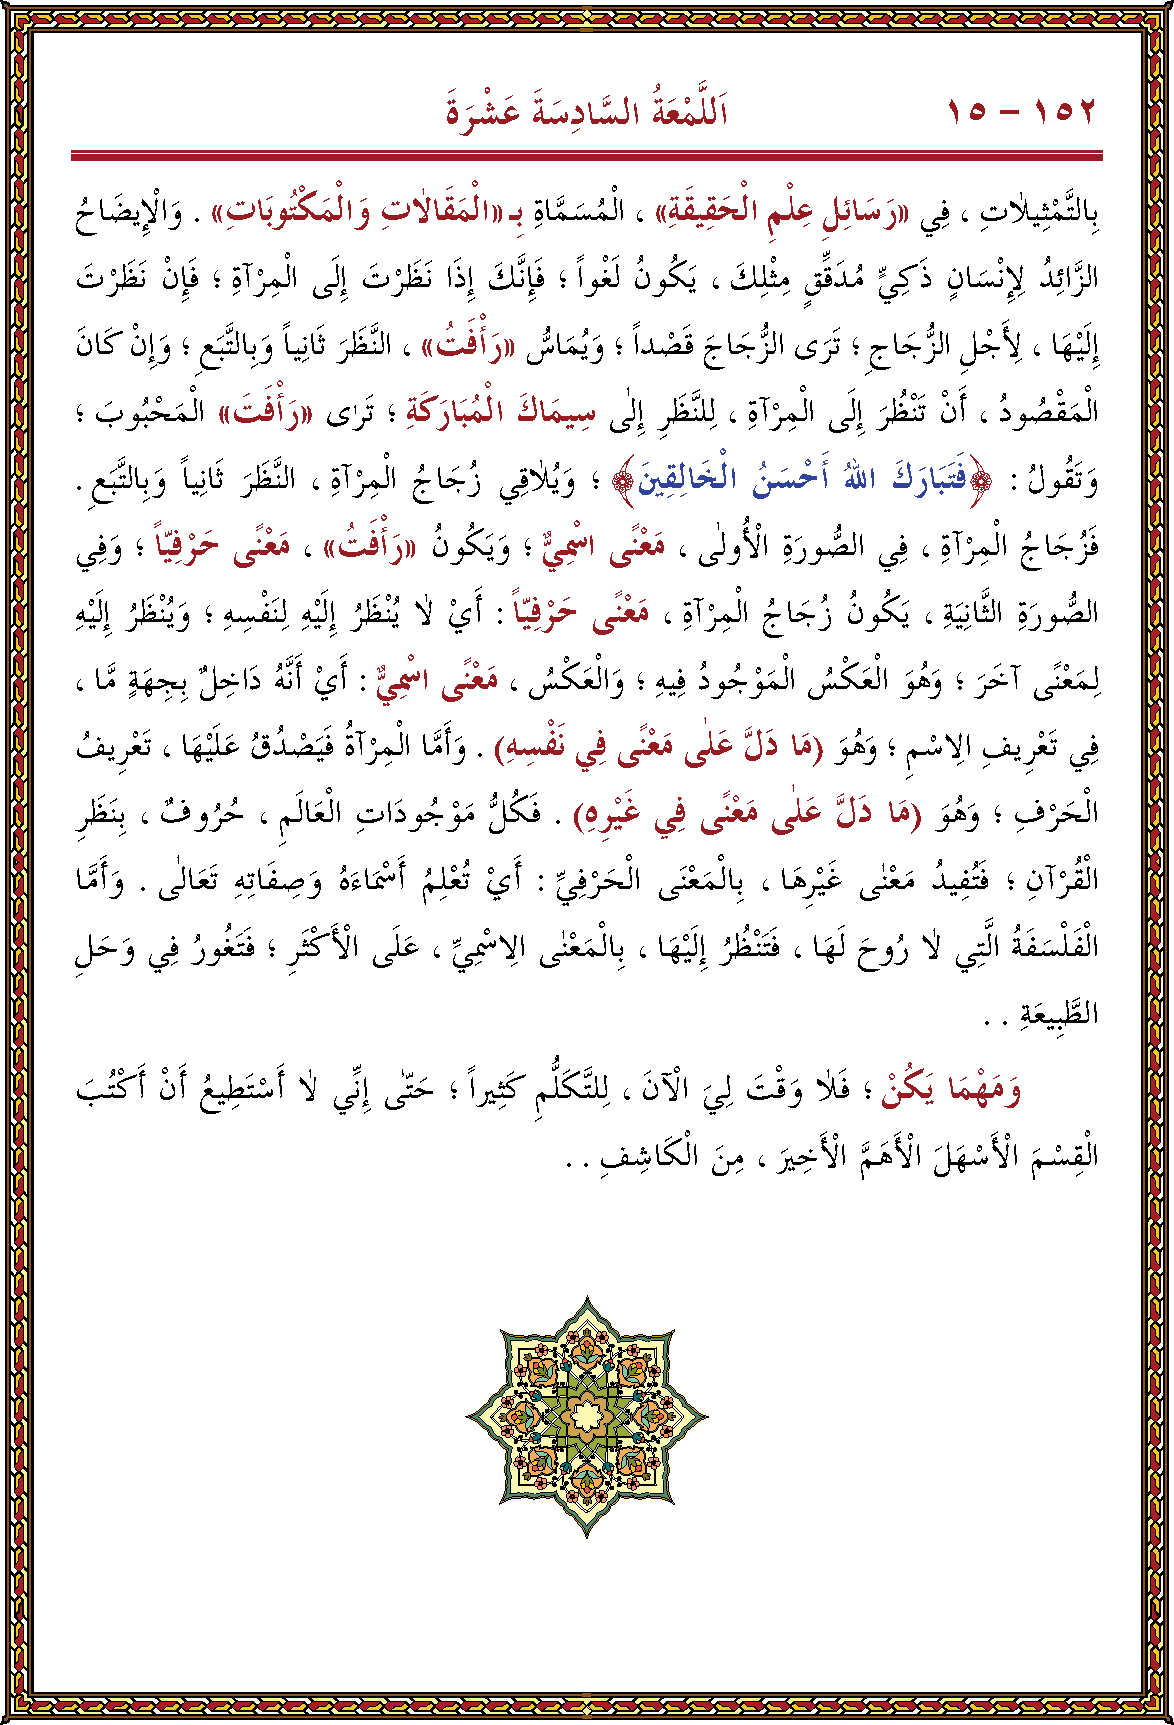 ١٥٢ – ١٥
اَللَّمْعَةُ السَّادِسَةَ عَشْرَةَ
بِالتَّمْثِيلَاتِ ، فِي «رَسَائِلِ عِلْمِ الْحَقِيقَةِ» ، الْمُسَمَّاةِ بِـ «الْمَقَالَاتِ وَالْمَكْتُوبَاتِ» . وَالْإِيضَاحُ
الزَّائِدُ لِإِنْسَانٍ ذَكِيٍّ مُدَقِّقٍ مِثْلِكَ ، يَكُونُ لَغْواً ؛ فَإِنَّكَ إِذَا نَظَرْتَ إِلَى الْمِرْآةِ ؛ فَإِنْ نَظَرْتَ
إِلَيْهَا ، لِأَجْلِ الزُّجَاجِ ؛ تَرَى الزُّجَاجَ قَصْداً ؛ وَيُمَاسُّ «رَأْفَتُ» ، النَّظَرَ ثَانِياً وَبِالتَّبَعِ ؛ وَإِنْ كَانَ
الْمَقْصُودُ ، أَنْ تَنْظُرَ إِلَى الْمِرْآةِ ، لِلنَّظَرِ إِلٰى سِيمَاكَ الْمُبَارَكَةِ ؛ تَرٰى «رَأْفَتَ» الْمَحْبُوبَ ؛
وَتَقُولُ : ﴿فَتَبَارَكَ اللهُ أَحْسَنُ الْخَالِقِينَ﴾ ؛ وَيُلَاقِي زُجَاجُ الْمِرْآةِ ، النَّظَرَ ثَانِياً وَبِالتَّبَعِ .
فَزُجَاجُ الْمِرْآةِ ، فِي الصُّورَةِ الْأُولٰى ، مَعْنًى اسْمِيٌّ ؛ وَيَكُونُ «رَأْفَتُ» ، مَعْنًى حَرْفِيّاً ؛ وَفِي
الصُّورَةِ الثَّانِيَةِ ، يَكُونُ زُجَاجُ الْمِرْآةِ ، مَعْنًى حَرْفِيّاً : أَيْ لَا يُنْظَرُ إِلَيْهِ لِنَفْسِهِ ؛ وَيُنْظَرُ إِلَيْهِ
لِمَعْنًى آخَرَ ؛ وَهُوَ الْعَكْسُ الْمَوْجُودُ فِيهِ ؛ وَالْعَكْسُ ، مَعْنًى اسْمِيٌّ : أَيْ أَنَّهُ دَاخِلٌ بِجِهَةٍ مَّا ،
فِي تَعْرِيفِ الِاسْمِ ؛ وَهُوَ (مَا دَلَّ عَلٰى مَعْنًى فِي نَفْسِهِ) . وَأَمَّا الْمِرْآةُ فَيَصْدُقُ عَلَيْهَا ، تَعْرِيفُ
الْحَرْفِ ؛ وَهُوَ (مَا دَلَّ عَلٰى مَعْنًى فِي غَيْرِهِ) . فَكُلُّ مَوْجُودَاتِ الْعَالَمِ ، حُرُوفٌ ، بِنَظَرِ
الْقُرْآنِ ؛ فَتُفِيدُ مَعْنٰى غَيْرِهَا ، بِالْمَعْنَى الْحَرْفِيِّ : أَيْ تُعْلِمُ أَسْمَاءَهُ وَصِفَاتِهِ تَعَالٰى . وَأَمَّا
الْفَلْسَفَةُ الَّتِي لَا رُوحَ لَهَا ، فَتَنْظُرُ إِلَيْهَا ، بِالْمَعْنٰى الِاسْمِيِّ ، عَلَى الْأَكْثَرِ ؛ فَتَغُورُ فِي وَحَلِ
الطَّبِيعَةِ . .
وَمَهْمَا يَكُنْ ؛ فَلَا وَقْتَ لِيَ الْآنَ ، لِلتَّكَلُّمِ كَثِيراً ؛ حَتّٰى إِنِّي لَا أَسْتَطِيعُ أَنْ أَكْتُبَ
الْقِسْمَ الْأَسْهَلَ الْأَهَمَّ الْأَخِيرَ ، مِنَ الْكَاشِفِ . .